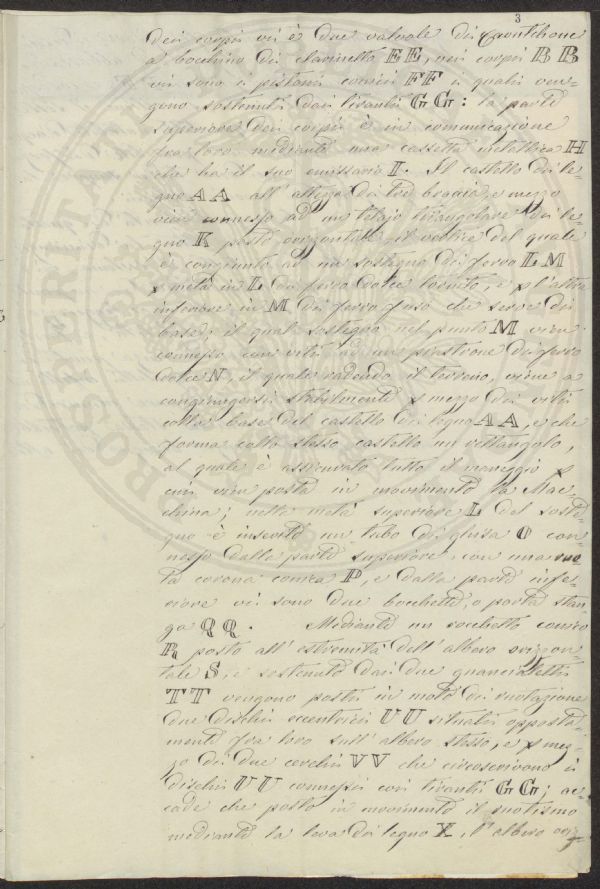 3
dei corpi vi è due valvole di
a bocchino di clarinetto EE, nei corpi BB
vi sono i pistoni conici FF i quali ven-
gono sostenuti dai tiranti GG: la parte
superiore dei corpi è in comunicazione
fra loro mediante una cassetta H
che ha il suo emissario I. Il castello di le-
gno AA all'altezza di tre braccia, e mezzo
vien connesso ad un telajo triangolare di le
gno K posto orizontale, il vertice del quale
è congiunto ad un sostegno di ferro LM
p metà in L di ferro dolce tornito, e p l'altra
inferiore in M di ferro fuso che serve di
base, il qual sostegno nel punto M vien
connesso con viti ad un piastrone di ferro
dolce N, il quale radendo il terreno, viene a
congiungersi stabilmente p mezzo di viti
colla base del castello di legno AA, e che
forma collo stesso castello un rettangolo,
al quale è assicurato tutto il maneggio p
cui vien posta in movimento la Mac-
china; nella metà superiore L del soste
gno è inserito un tubo di ghisa O con-
nesso dalla parte superiore, con una ruo
ta corona conica P, e dalla parte infe-
riore vi sono due bocchette, o porta stan-
ga QQ. Mediante un rocchetto conico
R posto all'estremità dell'albero orizon-
tale S, e sostenuto dai due guancialetti
TT vengono posti in moto di rotazione
due dischi eccentrici UU situati opposta-
mente fra loro sull'albero stesso, e p mez-
zo di due cerchi VV che circoscrivono i
dischi UU connessi coi tiranti GG; ac-
cade che posto in movimento il ruotismo
mediante la leva di legno X, l'albero oriz-